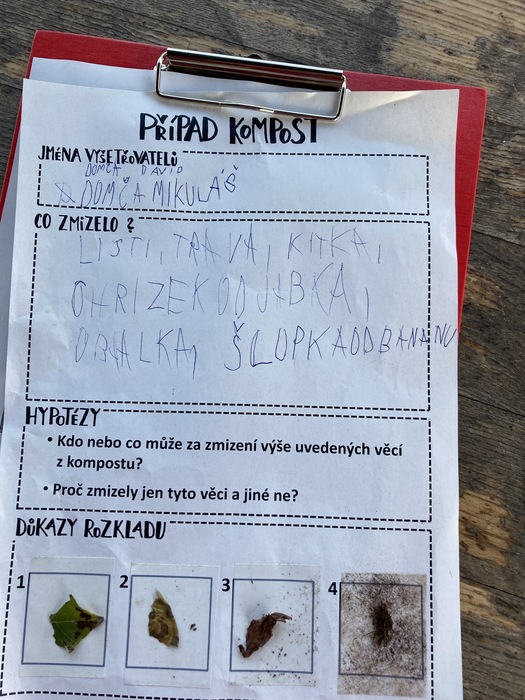 PŘÍPAD KOMPOST
JMÉNA VYŠETŘOVATELŮ
DOMČA DAVID
DOMČA MIKULÁŠ
CO ZMIZELO ?
LISTI, TRAVA, KITKA,
OHRIZEK OD JABKA,
OBALKA, ŠLOPKAODBANANU
HYPOTÉZY
• Kdo nebo co může za zmizení výše uvedených věcí
z kompostu?
• Proč zmizely jen tyto věci a jiné ne?
DŮKAZY ROZKLADU
1 2 3 4